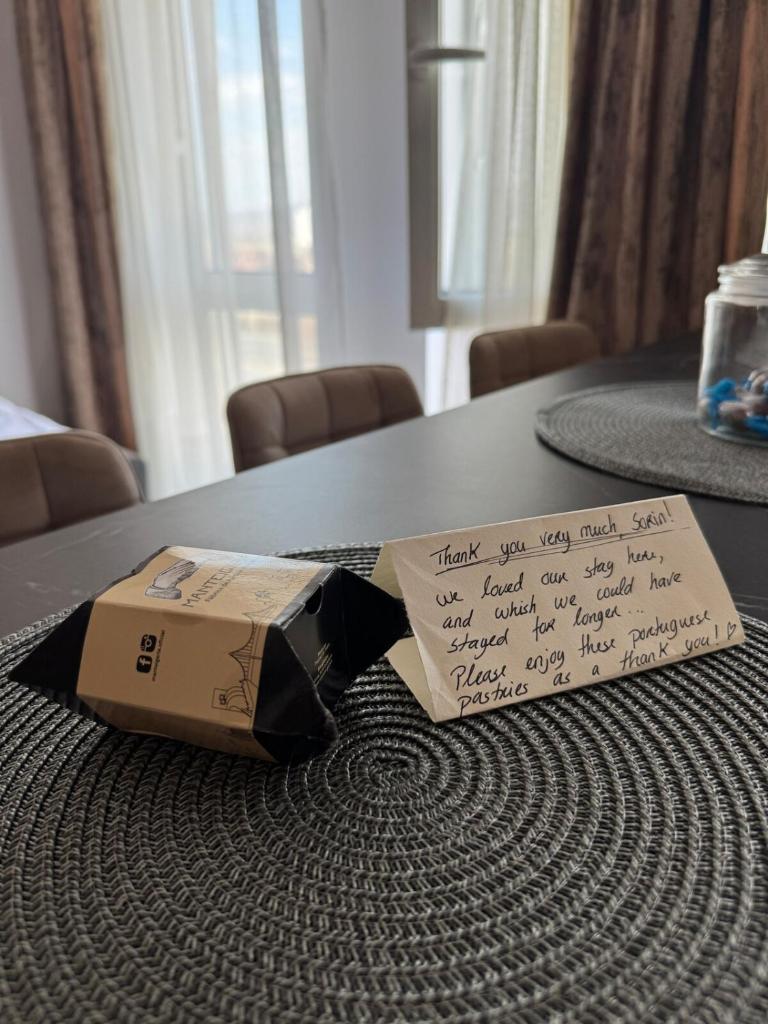 MANTEIG
Thank you very much, Sorin!
we loved our stay here,
and whish we could have
stayed for longer...
Please enjoy these portuguese
pastries as a thank you! ♡